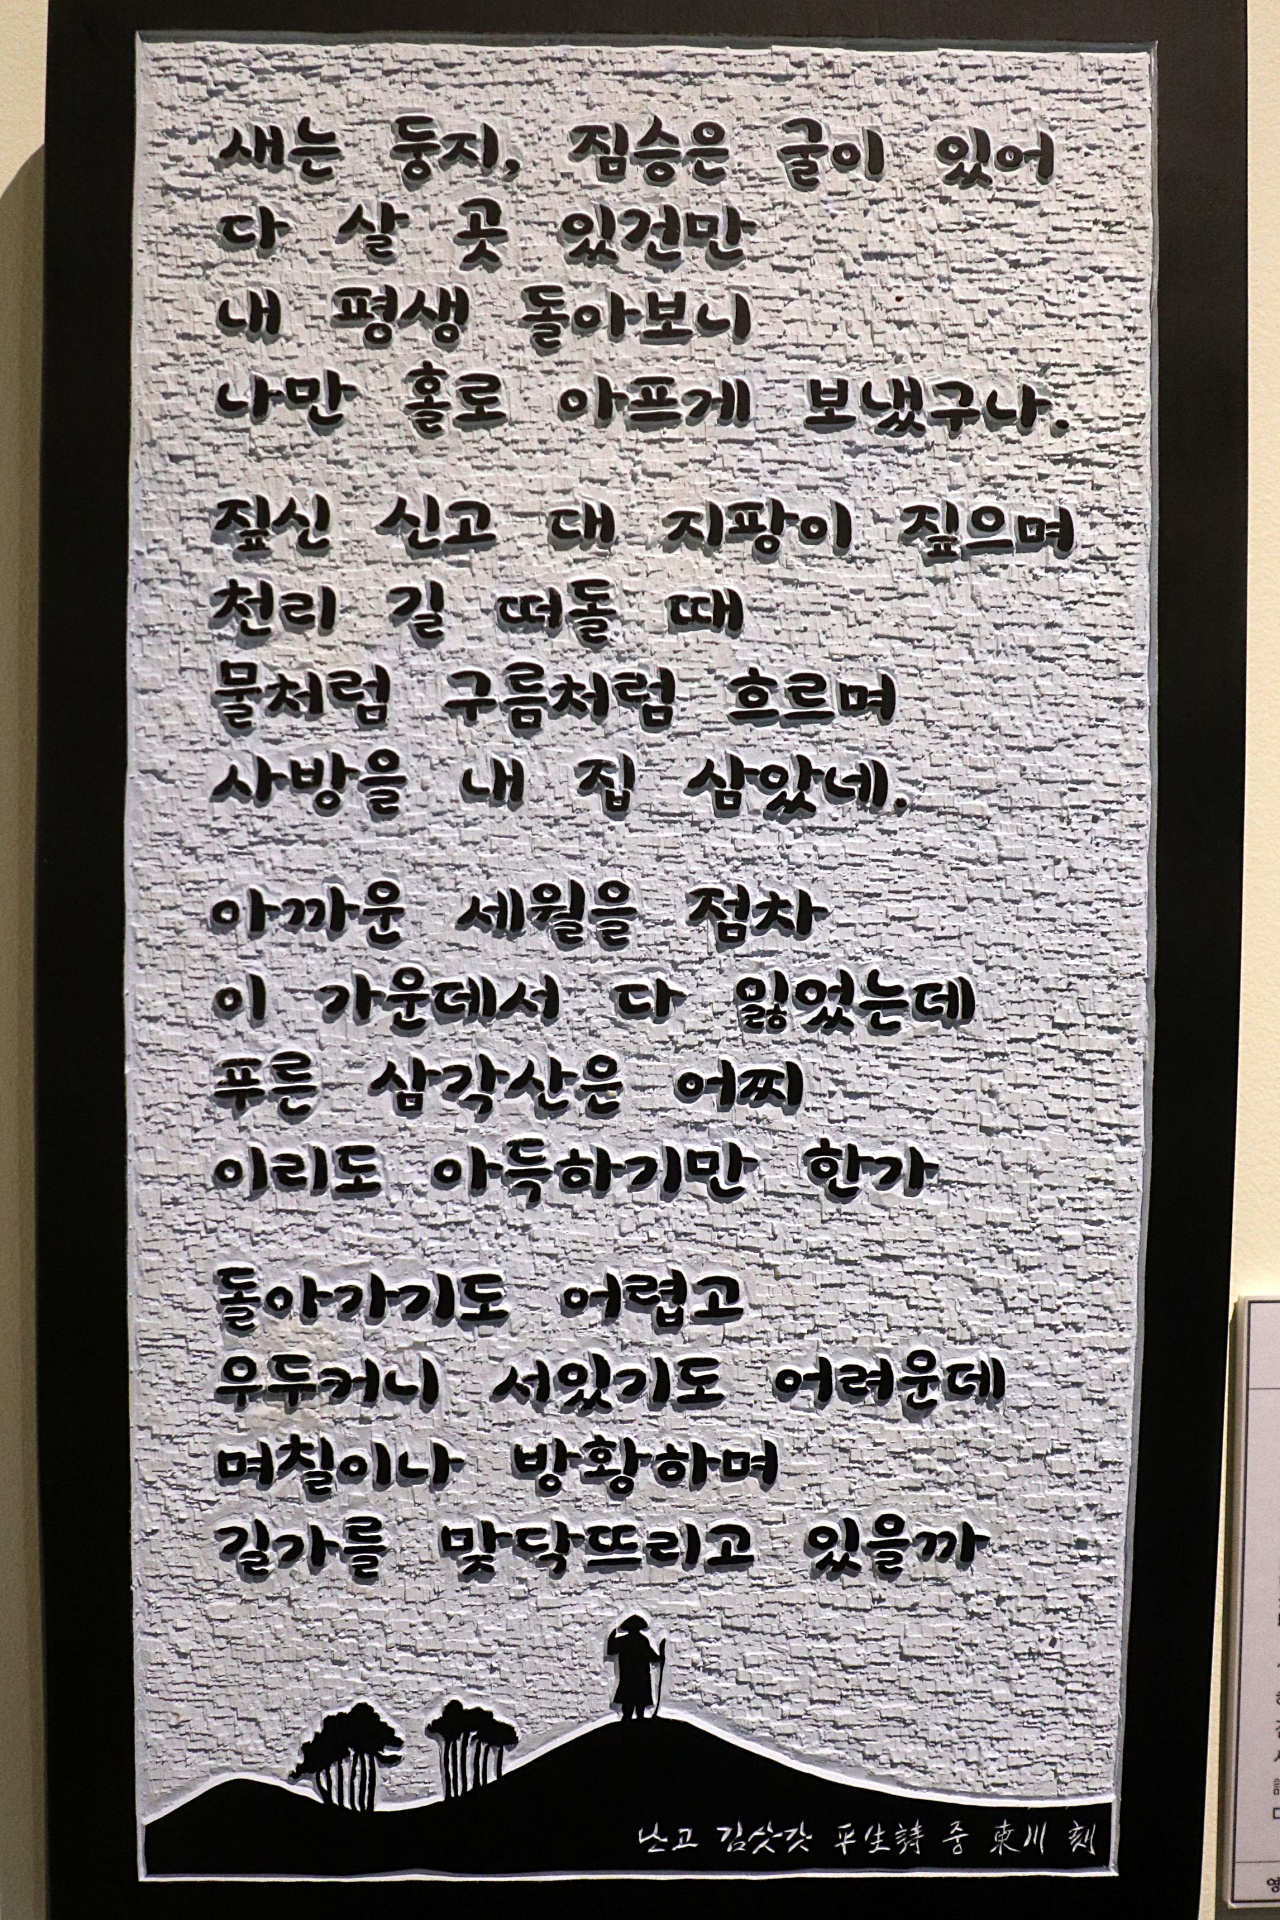 새는 둥지, 짐승은 굴이 있어
다 살 곳 있건만
내 평생 돌아보니
나만 홀로 아프게 보냈구나.
짚신 신고 대 지팡이 짚으며
천리 길 떠돌 때
물처럼 구름처럼 흐르며
사방을 내 집 삼았네.
아까운 세월을 점차
이 가운데서 다 잃었는데
푸른 삼각산은 어찌
이리도 아득하기만 한가
돌아가기도 어렵고
우두커니 서있기도 어려운데
며칠이나 방황하며
길가를 맞닥뜨리고 있을까
난고 김삿갓 平生詩 중 東川 刻